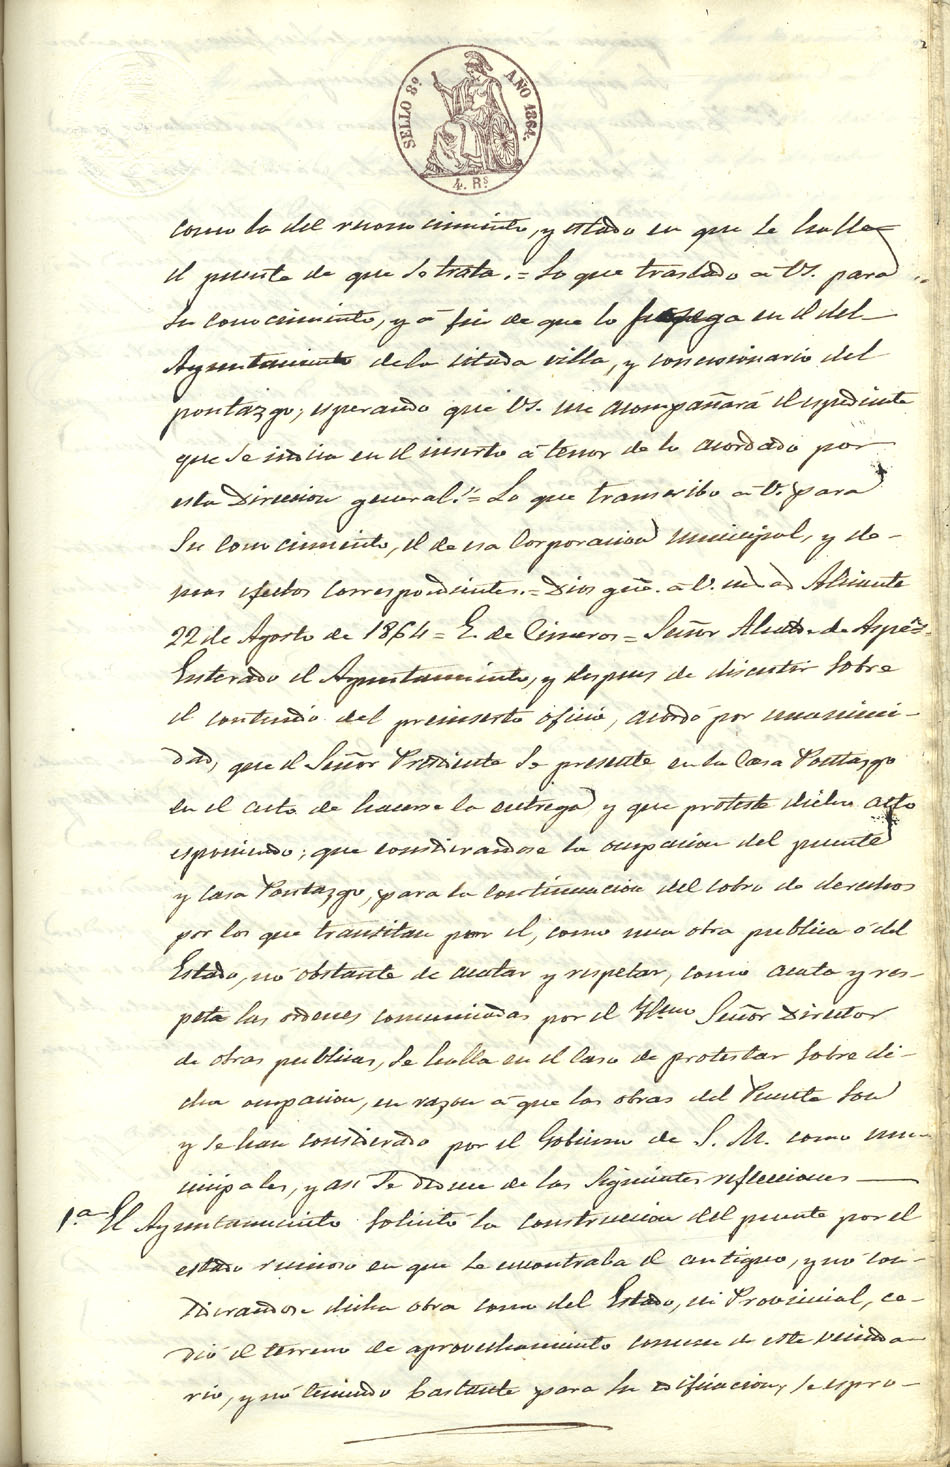 2
SELLO 8.º AÑO 1864.
4. Rs
como la del reconocimiento, y estado en que se halle
el puente de que se trata.= Lo que traslado a VS. para
su conocimiento, y á fin de que lo ponga en el del
Ayuntamiento de la citada villa, y concesionario del
pontazgo, esperando que VS. me acompañará el espediente
que se indica en el inserto á tenor de lo acordado por
esta Direccion general."= Lo que transcribo a V. para
su conocimiento, el de esa Corporacion municipal, y de-
mas efectos correspondientes.= Dios gue. a V. Alicante
22 de Agosto de 1864= E. de Cisneros= Señor Alcalde de Aspe=
Enterado el Ayuntamiento, y despues de discutir sobre
el contenido del preinserto oficio, acordó por unanimi-
dad, que el Señor Presidente se presente en la Casa Pontazgo
en el acto de hacerse la entrega y que proteste dicho acto
esponiendo; que considerandose la ocupacion del puente
y casa Pontazgo, para la continuacion del cobro de derechos
por los que transitan por el, como una obra publica ó del
Estado, no obstante de acatar y respetar, como acata y res-
peta las ordenes comunicadas por el Yllmo Señor Director
de obras publicas, se halla en el caso de protestar sobre di-
cha ocupacion, en razon á que las obras del Puente son
y se han considerado por el Gobierno de S. M. como mu-
nicipales, y asi se deduce de las siguientes reflecciones
1.ª El Ayuntamiento solicitó la construccion del puente por el
estado ruinoso en que se encontraba el antiguo, y no con-
siderandose dicha obra como del Estado, ni Provincial, ce-
dió el terreno de aprovechamiento comun de este vecinda-
rio, y no teniendo bastante para su edificacion, se espro-